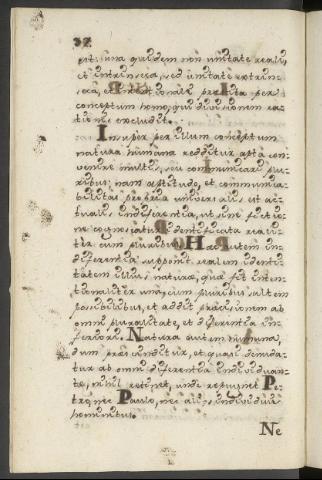 37
get: una quidem non unitate reali,
et intrinseca, sed unitate extrin-
seca, et intentionali præstita per
conceptum homo, qui divisionem ra-
tionis excludit.
Insuper per illum conceptum
natura humana redditur apta con-
venire multis, seu communicari plu-
ribus: nam aptitudo, et communica-
bilitas propria universalis, est ac-
tualis indiferentia, ut sine fictio-
ne cognoscatur identificata reali-
ter cum pluribus. Hæc autem in-
diferentia supponit realem identi-
tatem illius naturæ, quæ fit inten-
tionaliter una, cum pluribus saltem
possibilibus, et addit præcisionem ab
omni pluralitate, et diferentia in-
feriori. Natura autem humana,
dum præscinditur, et quasi denuda-
tur ab omni diferentia individuan-
te, nihil retinet, unde repugnet Pe-
tro, nec Paulo, nec aliis individuis
hominibus.
Ne